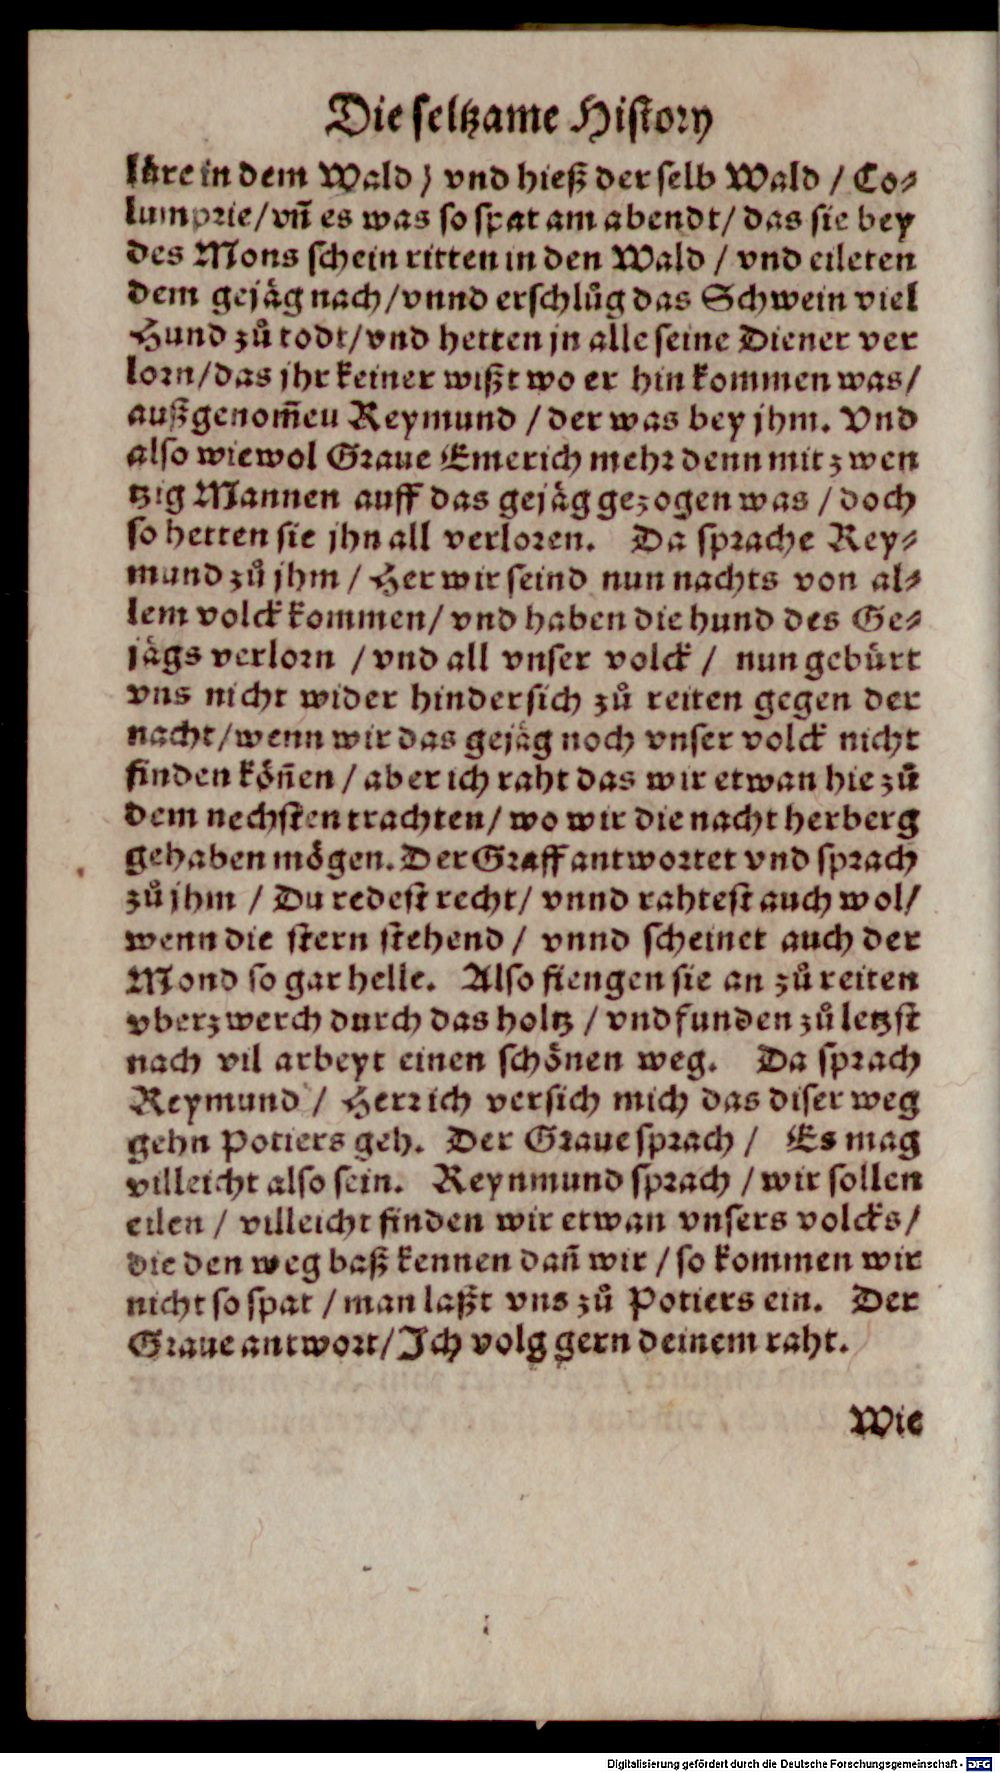 Die seltzame History
läre in dem Wald / vnd hieß der selb Wald / Co⸗
lumprie / vñ es was so spat am abendt / das sie bey
des Mons schein ritten in den Wald / vnd eileten
dem gejäg nach / vnnd erschlůg das Schwein viel
Hund zů todt / vnd hetten jn alle seine Diener ver
lorn / das jhr keiner wißt wo er hin kommen was /
außgenom̃eu Reymund / der was bey jhm. Vnd
also wiewol Graue Emerich mehr denn mit zwen
tzig Mannen auff das gejäg gezogen was / doch
so hetten sie jhn all verloren. Da sprache Rey⸗
mund zů jhm / Her wir seind nun nachts von al⸗
lem volck kommen / vnd haben die hund des Ge⸗
jägs verlorn / vnd all vnser volck / nun gebürt
vns nicht wider hindersich zů reiten gegen der
nacht / wenn wir das gejäg noch vnser volck nicht
finden köñen / aber ich raht das wir etwan hie zů
dem nechsten trachten / wo wir die nacht herberg
gehaben mögen. Der Graff antwortet vnd sprach
zů jhm / Du redest recht / vnnd rahtest auch wol /
wenn die stern stehend / vnnd scheinet auch der
Mond so gar helle. Also fiengen sie an zů reiten
vberzwerch durch das holtz / vnd funden zů letzst
nach vil arbeyt einen schönen weg. Da sprach
Reymund / Herr ich versich mich das diser weg
gehn Potiers geh. Der Graue sprach / Es mag
villeicht also sein. Reynmund sprach / wir sollen
eilen / villeicht finden wir etwan vnsers volcks /
die den weg baß kennen dañ wir / so kommen wir
nicht so spat / man laßt vns zů Potiers ein. Der
Graue antwort / Ich volg gern deinem raht.
Wie
Digitalisierung gefördert durch die Deutsche Forschungsgemeinschaft - DFG